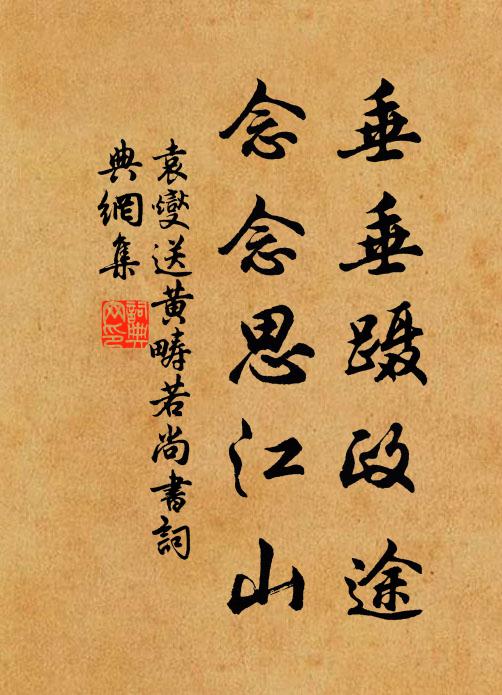 垂垂蹑政途
念念思江山
袁燮送黄畴若尚書詞
典網集
詞典网印